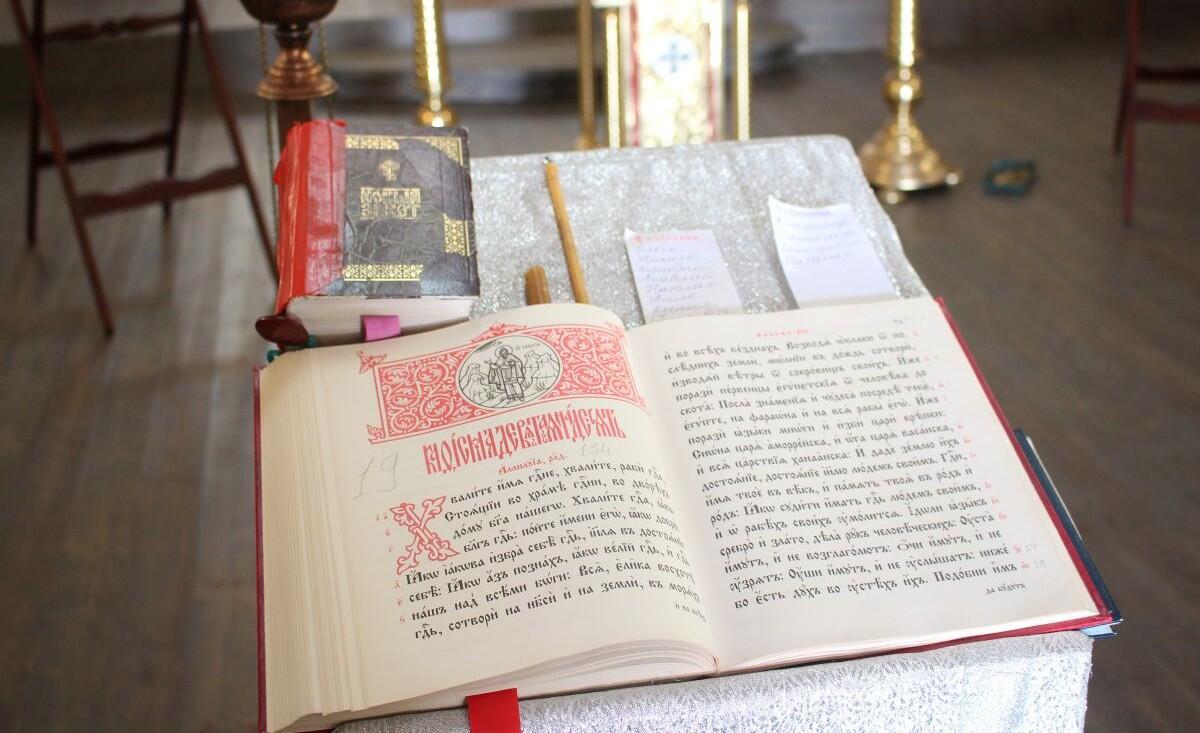 НОВЫЙ
КАѲІСМА ДЕВѦТАѦНАДЕСѦТЬ
Аллилꙋ́їа, рл҃д.
134
19
Хвали́те и҆́мѧ гдⷭ҇не, хвали́те, рабѝ гдⷭ҇а,
Стоѧ́щїи во хра́мѣ гдⷭ҇ни, во дво́рѣхъ
до́мꙋ бг҃а на́шегѡ. Хвали́те гдⷭ҇а, ꙗ҆́кѡ
бл҃гъ гдⷭ҇ь: по́йте и҆́мени є҆гѡ̀, ꙗ҆́кѡ добро̀:
Ꙗ҆́кѡ і҆а́кѡва и҆збра̀ себѣ̀ гдⷭ҇ь, і҆и҃лѧ въ достоѧ́нїе
себѣ̀: Ꙗ҆́кѡ а҆́зъ позна́хъ, ꙗ҆́кѡ ве́лїй гдⷭ҇ь, и҆ гдⷭ҇ь
на́шъ над̾ всѣ́ми бѡ́ги: Всѧ̑, є҆ли̑ка восхотѣ̀
гдⷭ҇ь, сотворѝ на нб҃сѝ и҆ на землѝ, въ морѧ́хъ
и҆ во всѣ́хъ
и҆ во всѣ́хъ бе́зднахъ. Возводѧ̀ ѡ҆́блаки ѿ по-
слѣ́днихъ землѝ, мѡ́лнїи въ до́ждь сотворѝ,
и҆зводѧ́й вѣ́тры ѿ сокро́вищъ свои́хъ. И҆́же
поразѝ пе́рвенцы є҆гѵ́пєтскїѧ ѿ человѣ́ка до
скота̀: Посла̀ зна́мєнїѧ и҆ чꙋдеса̀ посредѣ̀ тебє̀,
є҆гѵ́пте, на фараѡ́на и҆ на всѧ̑ рабы̑ є҆гѡ̀. И҆́же
поразѝ ꙗ҆зы́ки мнѡ́ги и҆ и҆збѝ цари̑ крѣ̑пки:
Сиѡ́на царѧ̀ а҆морре́йска, и҆ ѡ҆́га царѧ̀ васа́нска,
и҆ всѧ̑ ца̑рствїѧ ханаа̑нска: И҆ дадѐ зе́млю и҆́хъ
достоѧ́нїе, достоѧ́нїе і҆и҃лю лю́демъ свои̑мъ. Гдⷭ҇и,
и҆́мѧ твоѐ въ вѣ́къ, и҆ па́мѧть твоѧ̀ въ ро́дъ и҆
ро́дъ: Ꙗ҆́кѡ сꙋди́ти и҆́мать гдⷭ҇ь лю́демъ свои̑мъ,
и҆ ѡ҆ рабѣ́хъ свои́хъ ᲂу҆мо́литсѧ. І҆́дѡли ꙗ҆зы̑къ
сребро̀ и҆ зла́то, дѣла̀ рꙋ́къ человѣ́ческихъ: Оу҆ста̀
и҆́мꙋтъ, и҆ не возглаго́лютъ: Ѻ҆́чи и҆́мꙋтъ, и҆ не
ᲂу҆́зрѧтъ: Оу҆́ши и҆́мꙋтъ, и҆ не ᲂу҆слы́шатъ: нижѐ
бо є҆́сть дꙋ́хъ во ᲂу҆стѣ́хъ и҆́хъ. Подо́бни и҆̀мъ
да бꙋ́дꙋтъ
17
18